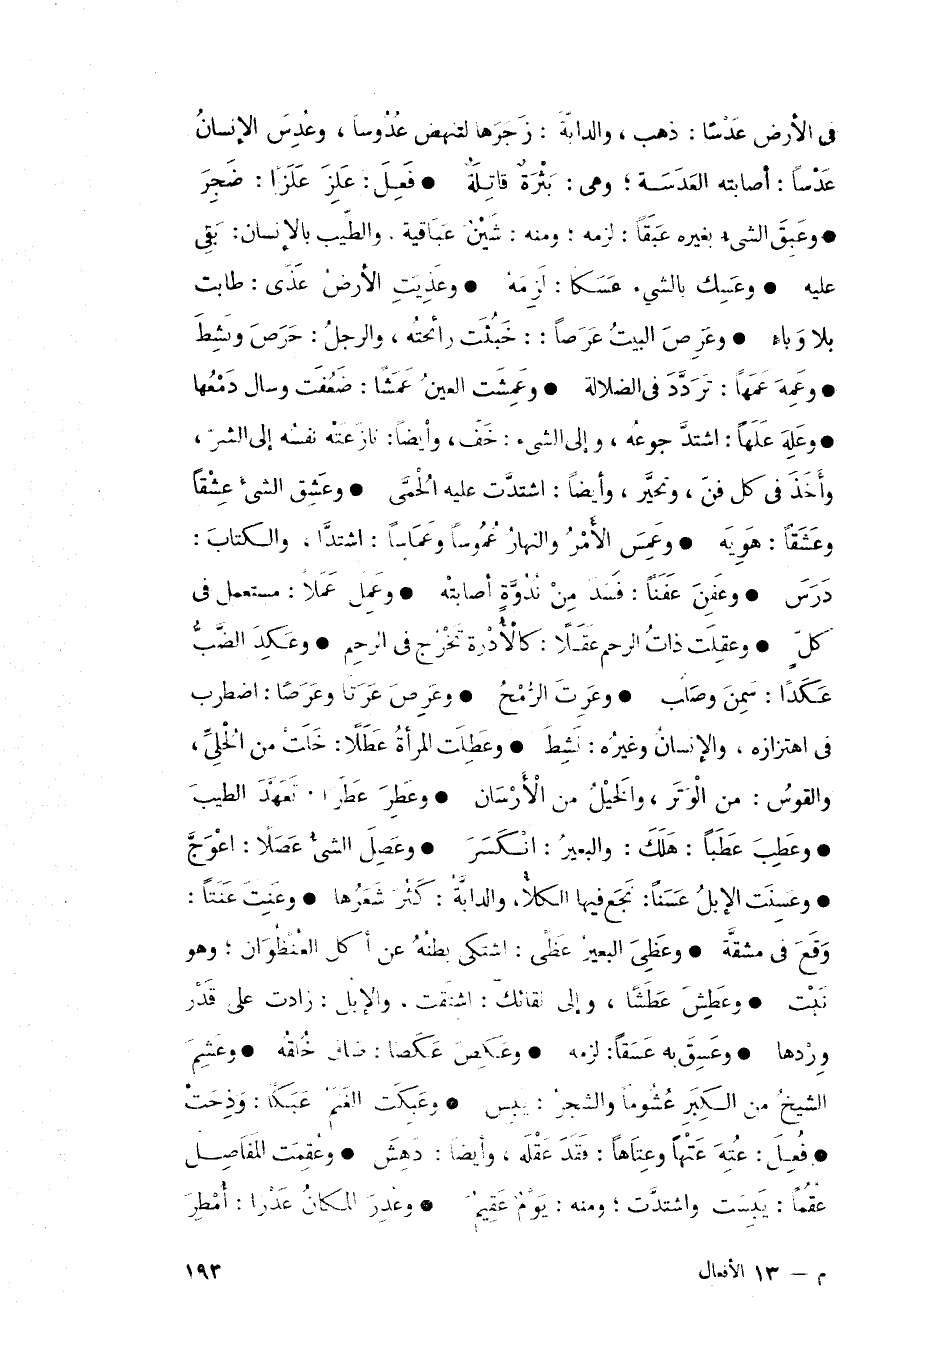 فى الأرض عَدْسًا : ذهب ، والدابّةَ : زَجَرَها لتنهض عُدُوسا ، وعُدِسَ الإنسانُ
عَدْساً : أصابته العَدَسَــة ؛ وهى : بَثْرَةٌ قاتِلَةٌ ● فَعِلَ : عَلِزَ عَلَزًا : ضَجِرَ
● وعَبِقَ الشىء بغيره عَبَقًا : لزمه ؛ ومنه : شَيْنٌ عَبَاقية . والطِّيب بالإنسان : بَقِى
عليه ● وعَسِك بالشىء عَسَكا : لَزِمَهُ ● وعَذِيَتِ الأرضُ عَذًى : طابت
بلا وَباء ● وعَرِصَ البيتُ عَرَصاً : : خَبُثَت رائحتُه ، والرجلُ : حَرَصَ ونَشِطَ
● وعَمِهَ عَمَهاً : تَرَدَّدَ فى الضلالة ● وعَمِشَت العينُ عَمَشًا : ضَعُفَت وسال دَمْعُها
● وعَلِهَ عَلَهاً : اشتدَّ جوعُه ، وإلى الشىء : خَفّ ، وأيضاً : نازَعَتْه نفسُه إلى الشرّ ،
وأَخَذَ فى كل فنّ ، وتحيَّر ، وأيضاً : اشتدَّت عليه الُحْمَّى ● وعَشِق الشىءَ عِشْقاً
وعَشَقاً : هَوِيَه ● وعَمِسَ الأَمْرُ والنهارُ عُمُوساً وعَمَاساً : اشتدَّا ، والـكتابَ :
دَرَسَ ● وعَفِنَ عَفَناً : فَسَدَ مِنْ نُدُوَّةٍ أصابتْه ● وعَمِل عَمَلاً : مستعمل فى
كلٍّ ● وعقِلَت ذاتُ الرحم عَقَــلًا : كالْأُدْرة تَخْرُج فى الرحِم ● وعَـكِدَ الضَّبُّ
عَـكَدًا : سَمِنَ وصَلُب ● وعَرِتَ الرُّمْحُ ● وعَرِصَ عَرَتًا وعَرَصًا : اضطرب
فى اهتزازه ، والإنسانُ وغيرُه : نَشِطَ ● وعَطِلَت المرأةُ عَطَلًا : خَلَتْ من الُحْلِىِّ ،
والقوسُ : من الْوَتَر ، والَخيْلُ من الْأَرْسَان ● وعَطِرَ عَطَرا : تَعَهَّدَ الطيبَ
● وعَطِبَ عَطَباً : هَلَكَ : والبعيرُ : انْـكَسَرَ ● وعَصِلَ الشىءُ عَصَلًا : اعْوَجَّ
● وعَسِنَت الإبلُ عَسَناً : نَجَع فيها الـكلأُ ، والدابَّةُ : كَثُرَ شَعَرُها ● وعَنِتَ عَنَتاً :
وَقَعَ فى مشقَّة ● وعَظِىَ البعيرُ عَظًى : اشتكى بطنُهُ عن أكل العُنْظُوَان ؛ وهو
نَبْت ● وعَطِشَ عَطَشًا ، وإلى لقائك : اشتقت . والإبل : زادت على قَدْر
وِرْدها ● وعَسِقَ به عَسَقاً : لزمه ● وعَـكِصَ عَـكَصا : ضاق خُلُقُه ● وعَشِمَ
الشيخُ من الـكِبَرِ عُشُوماً والشجرُ : يبس ● وعَبِكَت الغَنَمُ عَبَـكًا : وَذِحَتْ
● فُعِـلَ : عُتِهَ عَتْهاً وعتَاهاً : فَقَدَ عَقْلَه ، وأيضا : دَهِشَ ● وعُقِمَت المَفَاصِــل
عُقْمًا : يَبِسَت واشتدَّت ؛ ومنه : يَوْمٌ عَقِيمٌ ● وعُدِرَ المـكانُ عَدْرا : أُمْطِرَ
م — ١٣ الأفعال
١٩٣